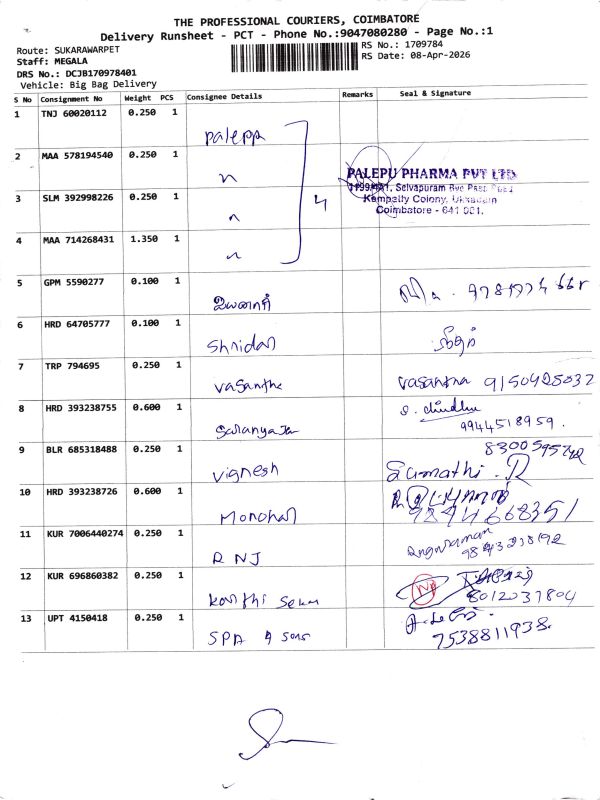 THE PROFESSIONAL COURIERS, COIMBATORE
Delivery Runsheet - PCT - Phone No.:9047080280 - Page No.:1
Route: SUKARAWARPET
Staff: MEGALA
DRS No.: DCJB170978401
Vehicle: Big Bag Delivery
RS No.: 1709784
RS Date: 08-Apr-2026
S No Consignment No Weight PCS Consignee Details Remarks Seal & Signature
1 TNJ 60020112 0.250 1 Palepu
2 MAA 578194540 0.250 1 "
PALEPU PHARMA PVT LTD
Selvapuram Bye Pass Road
Kempatty Colony, Ukkadam
Coimbatore - 641 001.
3 SLM 392998226 0.250 1 " 4
4 MAA 714268431 1.350 1 "
5 GPM 5590277 0.100 1
6 HRD 64705777 0.100 1 Shridar
7 TRP 794695 0.250 1 Vasantha Vasantha 9150425032
8 HRD 393238755 0.600 1 S. Sindhu
9944518959.
9 BLR 685318488 0.250 1 Vignesh Sumathi. R
10 HRD 393238726 0.600 1 Manohar
9894668351
11 KUR 7006440274 0.250 1 R N J
9843238192
12 KUR 696860382 0.250 1
8012037804
13 UPT 4150418 0.250 1 SPA & Sons
7538811938.